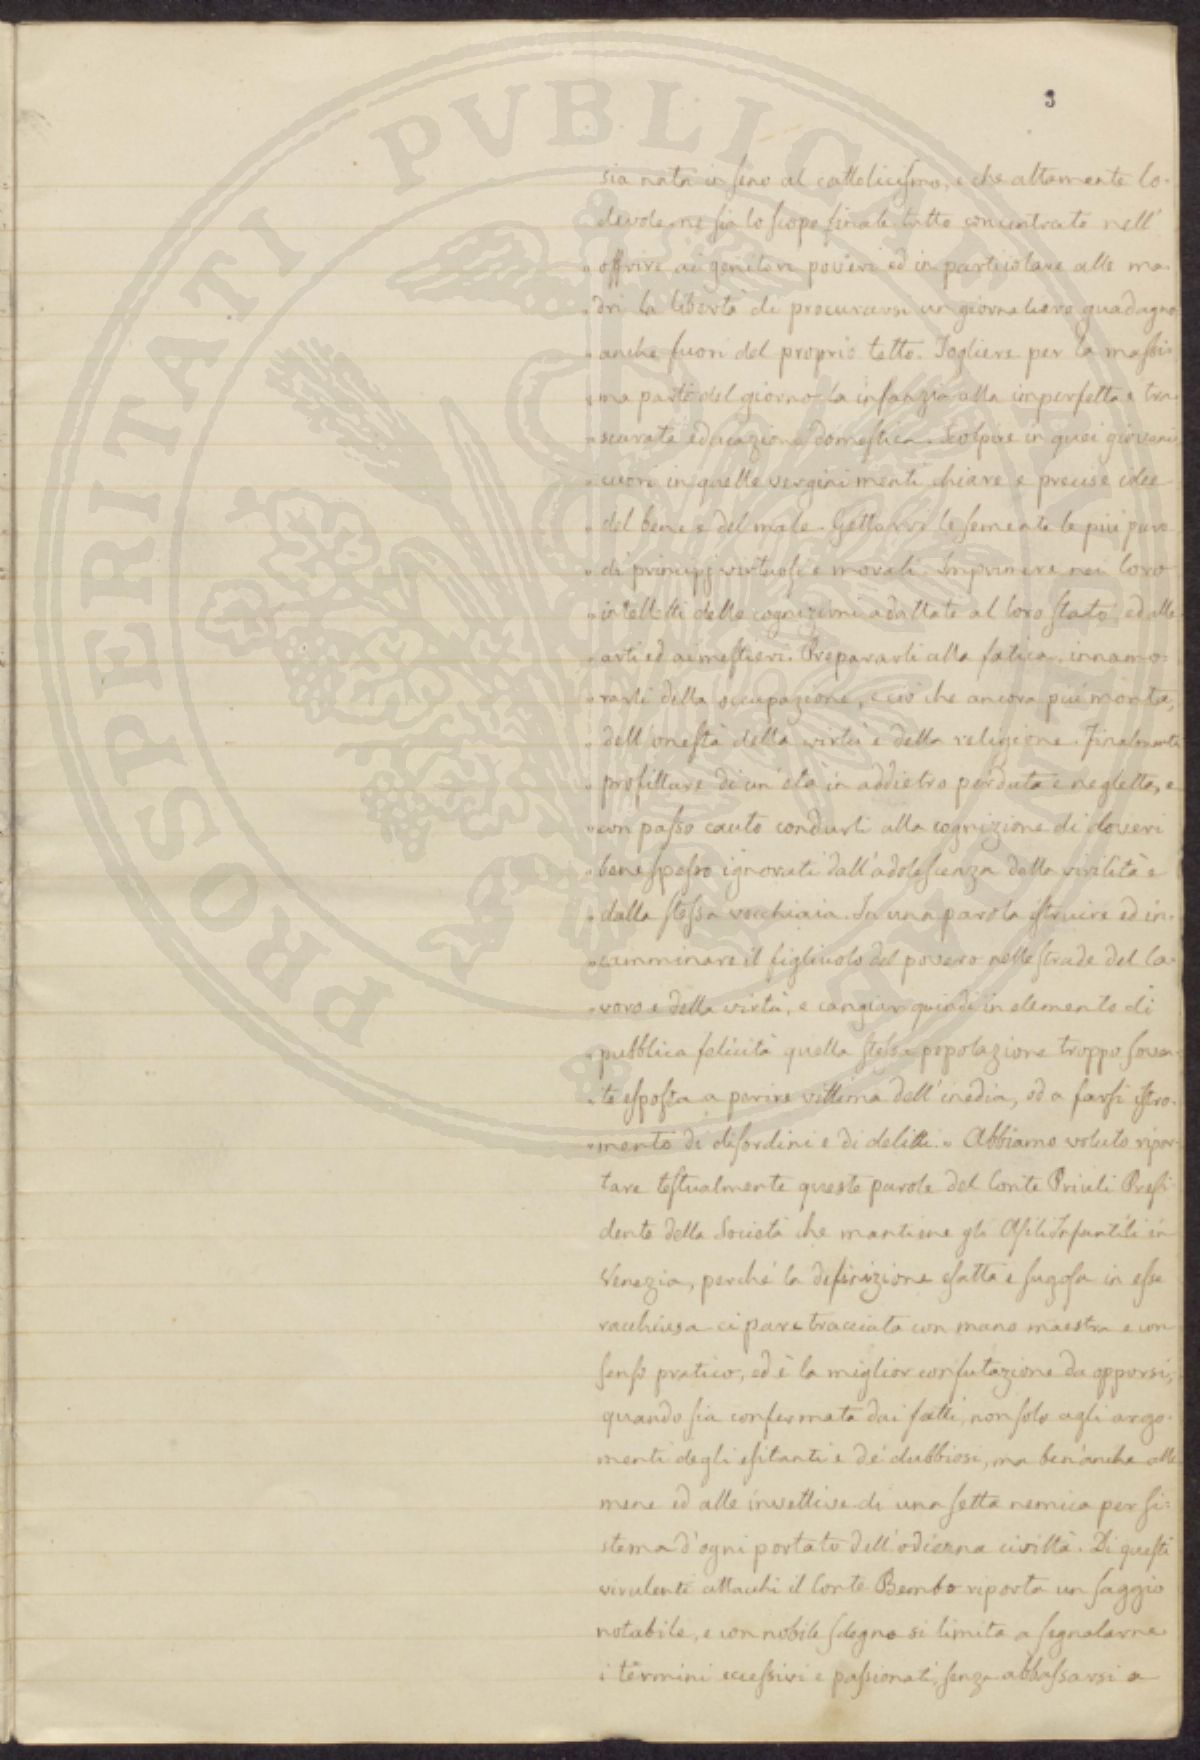 PROSPERITATI PVBLICAE
3
sia nata in seno al cattolicismo, e che altamente lo-
devole ne sia lo scopo finale tutto concentrato nell'
" offrire ai genitori poveri ed in particolare alle ma-
" dri la libertà di procurarsi un giornaliero guadagno
" anche fuori del proprio tetto. Togliere per la massi-
" ma parte del giorno la infanzia alla imperfetta e tra-
" scurata educazione domestica. Scolpire in quei giovani
" cuori in quelle vergini menti chiare e precise idee
" del bene e del male. Gettarvi le semente le più pure
" di principj virtuosi e morali. Imprimere nei loro
" intelletti delle cognizioni adattate al loro stato ed alle
" arti ed ai mestieri. Prepararli alla fatica, innamo-
" rarli della occupazione, e ciò che ancora più monta,
" dell'onestà della virtù e della religione. Finalmente
" profittare di un'età in addietro perduta e negletta, e
" con passo cauto condurli alla cognizione di doveri
" bene spesso ignorati dall'adolescenza dalla virilità e
" dalla stessa vecchiaia. In una parola istruire ed in-
" camminare il figliuolo del povero nelle strade del la-
" voro e della virtù, e cangiar quindi in elemento di
" pubblica felicità quella stessa popolazione troppo soven-
" te esposta a perire vittima dell'inedia, od a farsi istro-
" mento di disordini e di delitti. " Abbiamo voluto ripor-
tare testualmente queste parole del Conte Priuli Presi
dente della Società che mantiene gli Asili Infantili in
Venezia, perché la definizione esatta e sugosa in esse
racchiusa ci pare tracciata con mano maestra e con
senso pratico, ed è la miglior confutazione da opporsi,
quando sia confermata dai fatti, non solo agli argo-
menti degli esitanti e de' dubbiosi, ma ben'anche alle
mene ed alle invettive di una setta nemica per si-
stema d'ogni portato dell'odierna civiltà. Di questi
virulenti attacchi il Conte Bembo riporta un saggio
notabile, e con nobile sdegno si limita a segnalarne
i termini eccessivi e passionati, senza abbassarsi a